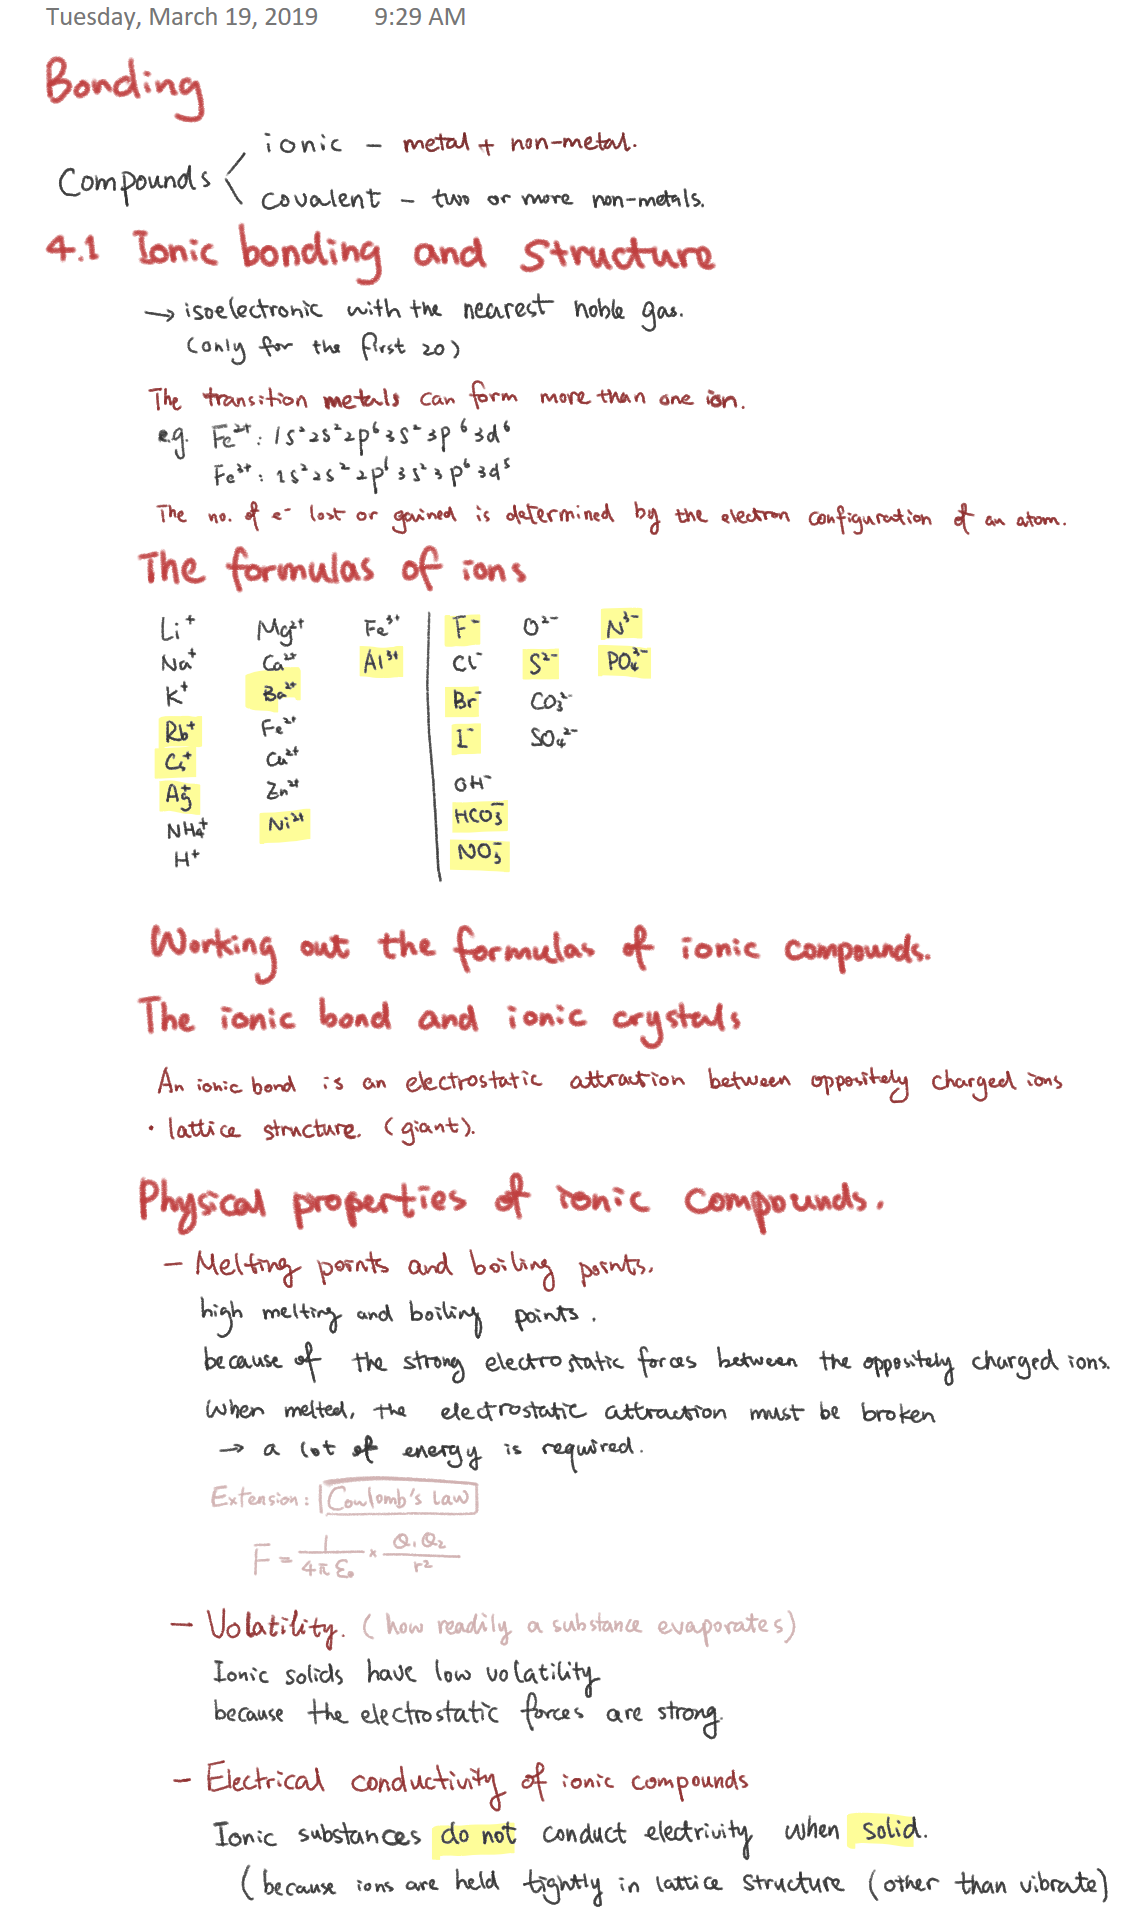 Tuesday, March 19, 2019 9:29 AM
Bonding
ionic – metal + non-metal.
Compounds
covalent – two or more non-metals.
4.1 Ionic bonding and structure
→ isoelectronic with the nearest noble gas.
(only for the first 20)
The transition metals can form more than one ion.
e.g. Fe²⁺: 1s²2s²2p⁶3s²3p⁶3d⁶
Fe³⁺: 1s²2s²2p⁶3s²3p⁶3d⁵
The no. of e⁻ lost or gained is determined by the electron configuration of an atom.
The formulas of ions
Li⁺ Mg²⁺ Fe³⁺ F⁻ O²⁻ N³⁻
Na⁺ Ca²⁺ Al³⁺ Cl⁻ S²⁻ PO₄³⁻
K⁺ Ba²⁺ Br⁻ CO₃²⁻
Rb⁺ Fe²⁺ I⁻ SO₄²⁻
Cs⁺ Cu²⁺ OH⁻
Ag⁺ Zn²⁺ HCO₃⁻
NH₄⁺ Ni²⁺ NO₃⁻
H⁺
Working out the formulas of ionic compounds.
The ionic bond and ionic crystals
An ionic bond is an electrostatic attraction between oppositely charged ions
· lattice structure. (giant).
Physical properties of ionic compounds.
– Melting points and boiling points.
high melting and boiling points.
because of the strong electrostatic forces between the oppositely charged ions.
When melted, the electrostatic attraction must be broken
→ a lot of energy is required.
Extension: Coulomb's Law
F = 1/4πε₀ × Q₁Q₂/r²
– Volatility. (how readily a substance evaporates)
Ionic solids have low volatility
because the electrostatic forces are strong.
– Electrical conductivity of ionic compounds
Ionic substances do not conduct electrivity when solid.
(because ions are held tightly in lattice structure (other than vibrate)